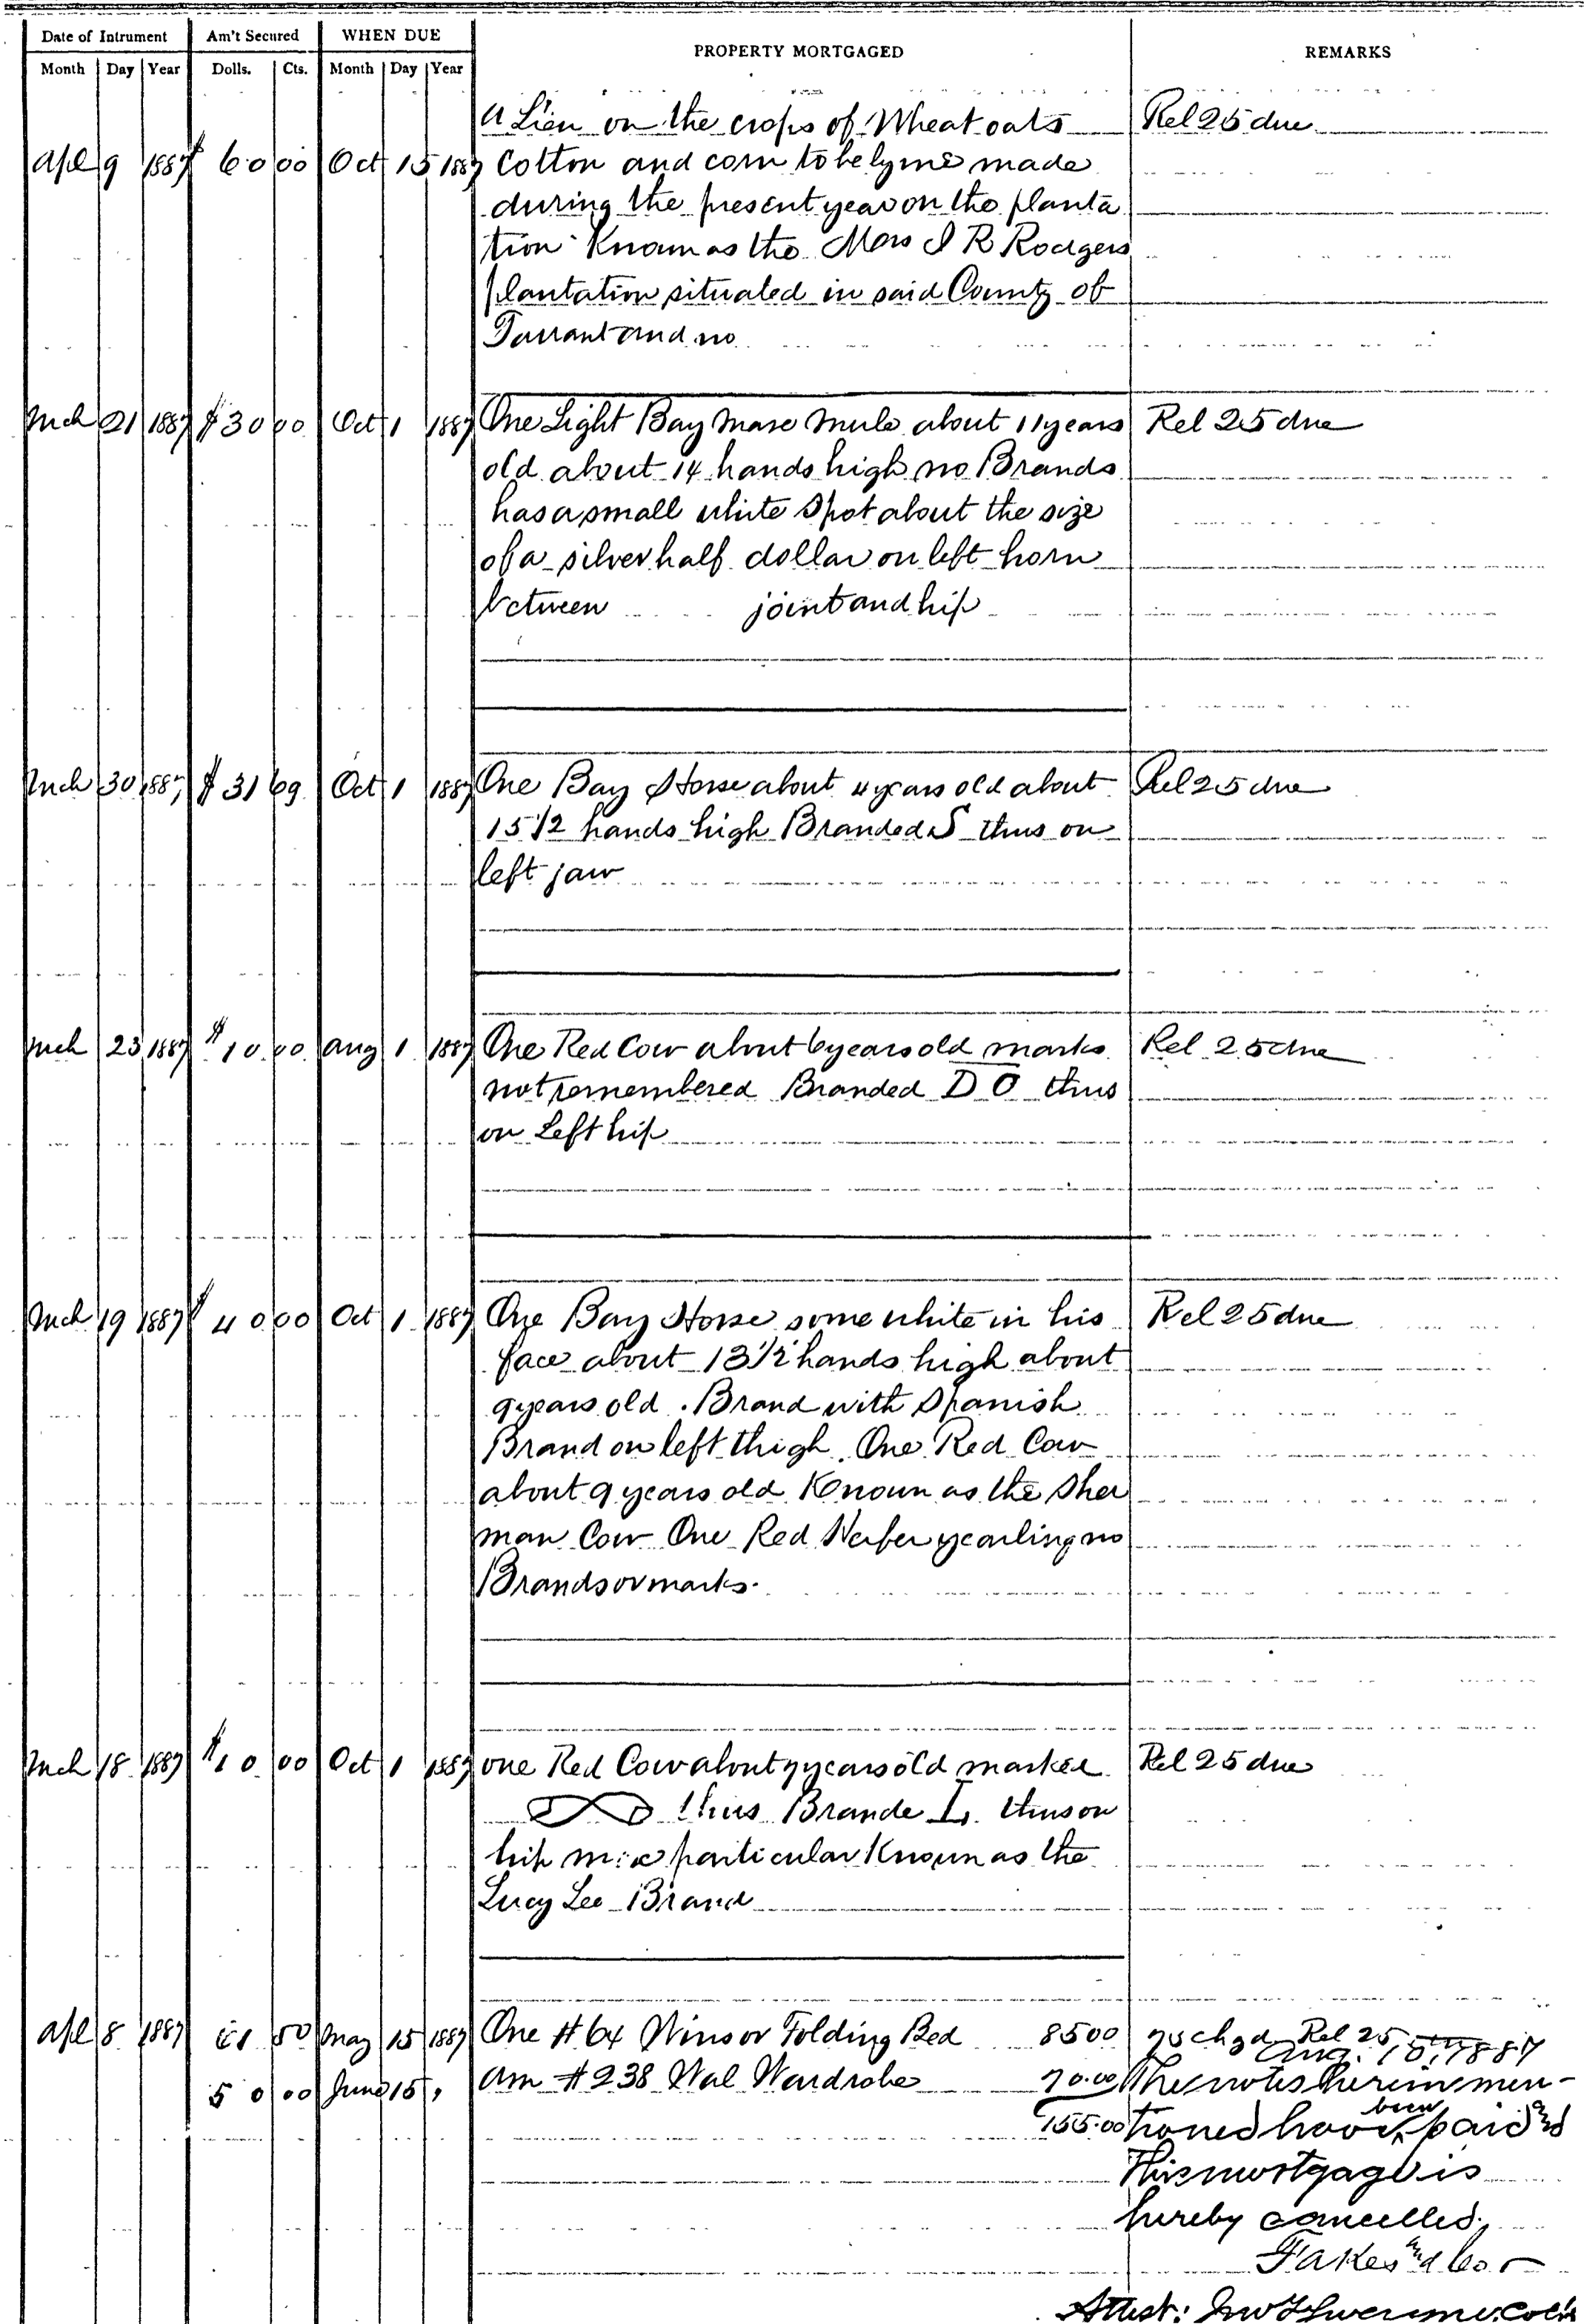 Date of Intrument Am't Secured WHEN DUE PROPERTY MORTGAGED REMARKS
Month Day Year Dolls. Cts. Month Day Year
A Lien on the crops of Wheat oats Rel 25 due
Apl 9 1887 $ 60 00 Oct 15 1887 Cotton and corn to be made
during the present year on the planta
tion Known as the J R Rodgers
plantation situated in said County of
Tarrant and no
Mch 21 1887 $ 30 00 Oct 1 1887 One Light Bay mare mule about 11 years Rel 25 due
old about 14 hands high no Brands
has a small white spot about the size
of a silver half dollar on left horn
between joint and hip
Mch 30 1887 $ 31 69 Oct 1 1887 One Bay Horse about 4 years old about Rel 25 due
15 1/2 hands high Branded S thus on
left jaw
Mch 23 1887 $ 10 00 Aug 1 1887 One Red Cow about 6 years old marks Rel 25 due
not remembered Branded D O thus
on Left hip
Mch 19 1887 $ 40 00 Oct 1 1887 One Bay Horse some white in his Rel 25 due
face about 13 1/2 hands high about
9 years old . Brand with Spanish
Brand on left thigh. One Red Cow
about 9 years old Known as the Sher
man Cow One Red Heifer yearling no
Brands or marks.
Mch 18 1887 $ 10 00 Oct 1 1887 one Red Cow about 7 years old marked Rel 25 due
thus Brande L thus on
hip particular Known as the
Lucy Lee Brand
Apl 8 1887 50 May 15 1887 One # 64 Winsor Folding Bed 85 00 chgd Rel 25
Aug. 10, 1887
50 00 June 15 " Am # 238 Wal Wardrobe 70.00 The notes herein men-
155.00 tioned have been paid and
This mortgage is
hereby cancelled.
Fakes and Co
Attest: